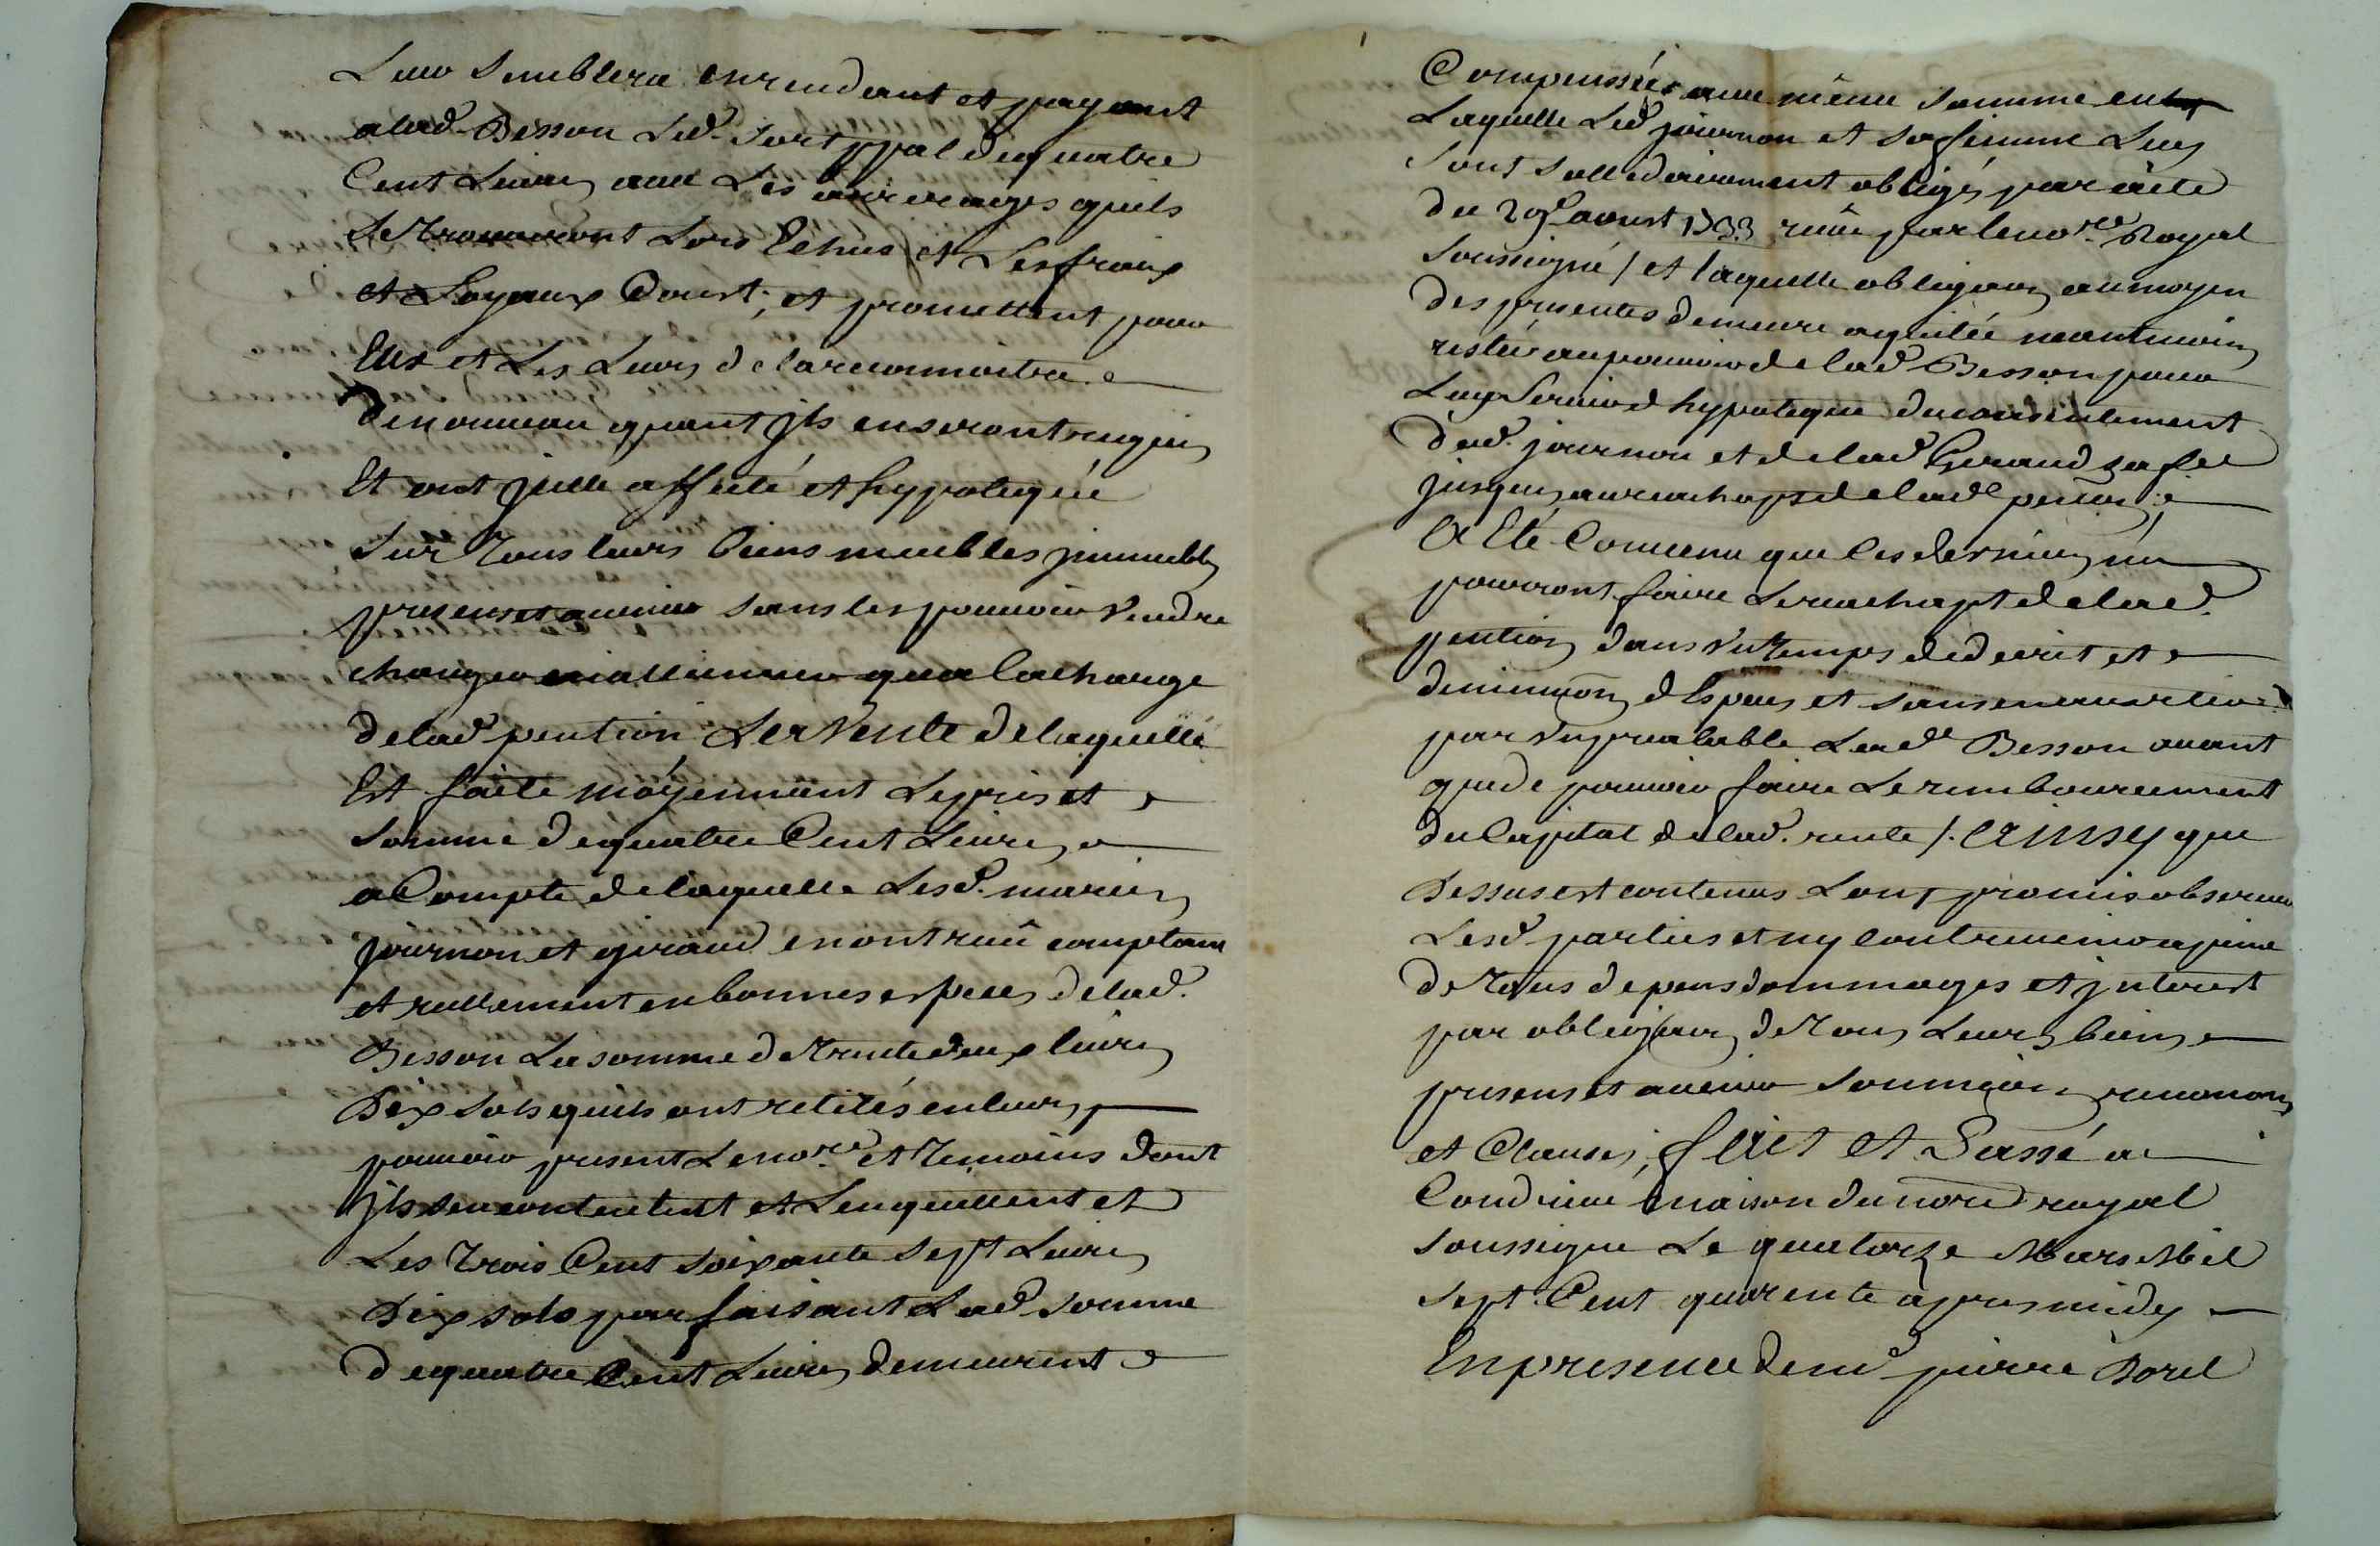 Leur semblera en rendant et payant
a lad. Besson Led. sort ppal de quatre
Cent Livres avec Les arrerages quils
se trouveront Lors Echus et Les fraix
et Loyaux Coust, et promettent pour
Eux et Les Leurs de la reconnoitre
de nouveau quant jls en seront requis
Et ont jcelle affecté et hypotequée
sur Tous leurs biens meubles jmmeubles
presens et avenir sans les pouvoir vendre
changer ni allienner qua la charge
de lad pention La Vente de laquelle
Est faite moyennant Le prix et
somme de quatre Cent Livres
a Compte de laquelle Lesd. mariés
journon et giraud en ont reçû comptant
et reellement en bonnes especes de lad.
Besson La somme de Trente deux livres
Dix sols quils ont retirés en leur
pouvoir present Le nore et Temoins dont
jls sen contentent et Len quittent et
Les Trois Cent soixante sept Livres
Dix sols parfaisant Lad somme
de quatre Cent Livres demeurent
Compensées avec même somme en
Laquelle Led journon et sa femme Luy
sont sollidairement obligés par acte
du 29e aoust 1733 reçû par le nore Royal
soussigné / et laquelle obligaon au moyen
des presentes demeure aquitée neantmoins
restée au pouvoir de lad Besson pour
Luy servir d hypoteque du consentement
dud. journon et de lad Giraud sa fe
jusques au rachapt de lade pention
A Eté Convenu que ces derniers ne
pourront faire Le rachapt de lad.
pention dans un Temps de decrit et
diminuon d Especes et sans en avertir
par un prealable Lade Besson avant
que de pouvoir faire Le remboursement
du Capital de lad. rente /. Ainsy que
Dessus est contenus Lont promis observer
Lesd parties et ny Contrevenir a peine
de Tous depens dommages et jnterest
par obligaon de Tous Leurs biens
presens et avenir soumissions renonons
et Clauses, fait et Passé a
Condrieu maison du nore royal
soussigne Le quatorze Mars Mil
sept Cent quarente apres midy
En presence de me pierre Borel